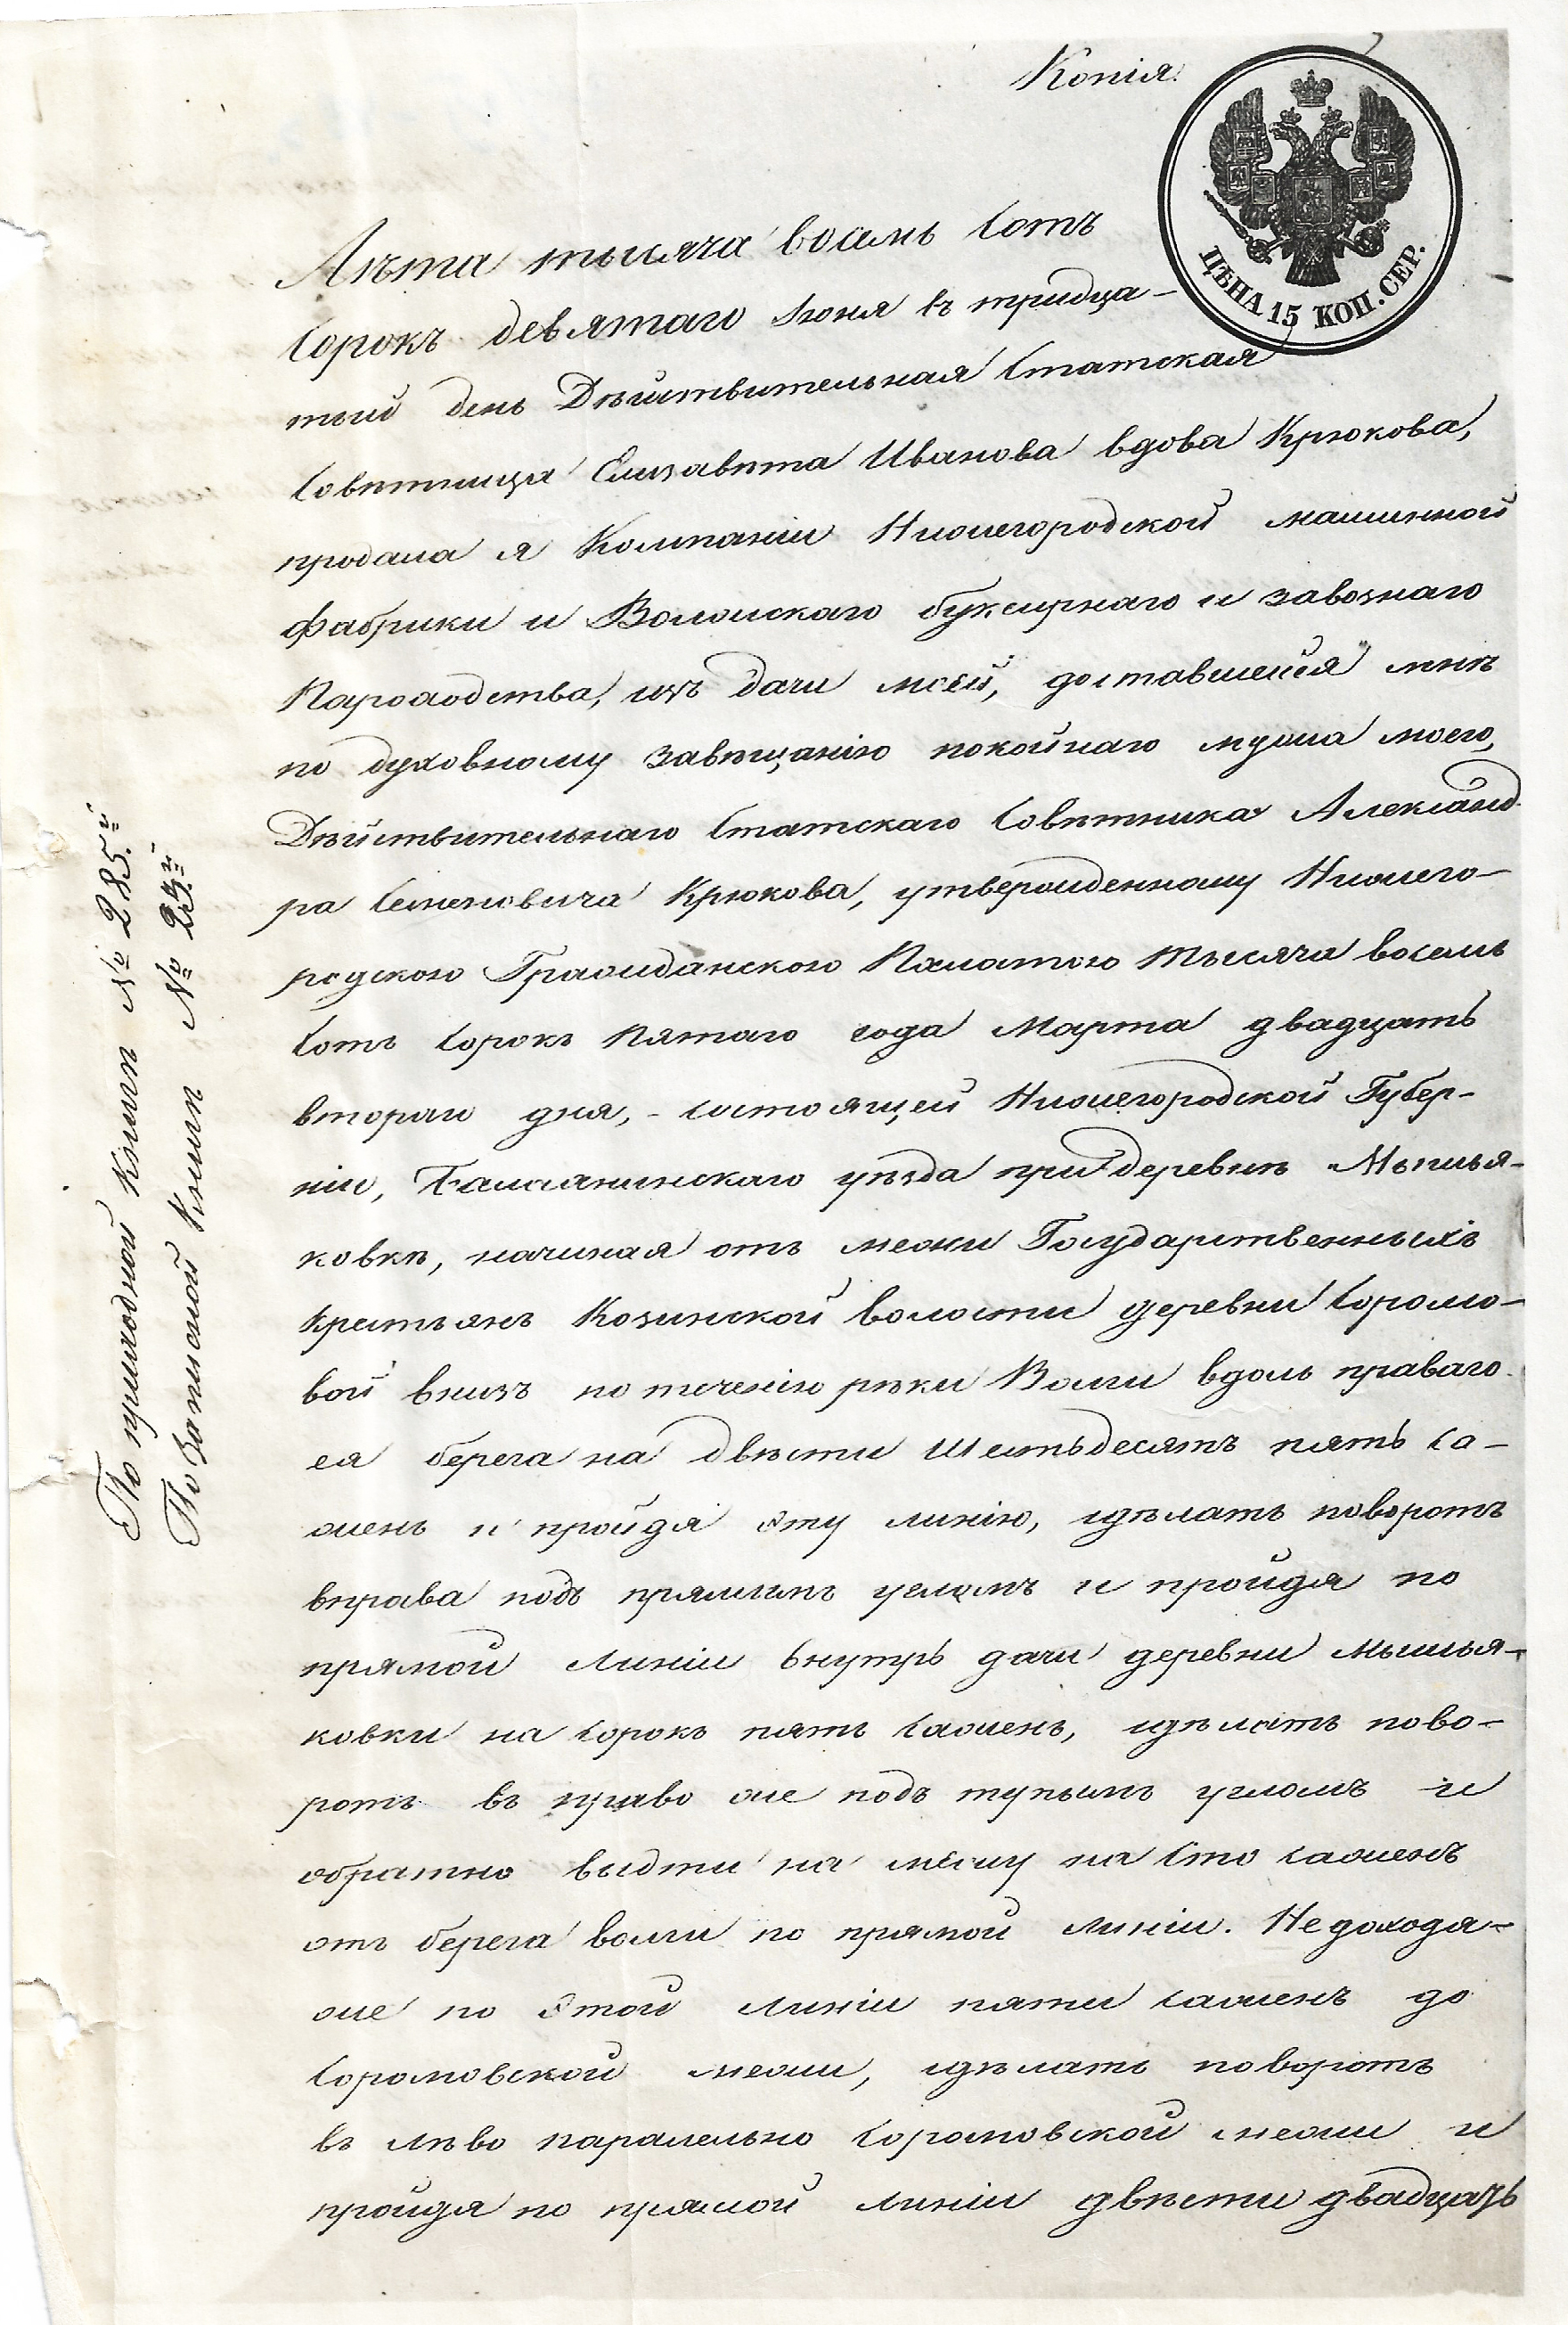 Копія.
ЦѢНА 15 КОП. СЕР.
Лѣта тысяча восемь сотъ
сорокъ девятаго Іюня въ тридца-
тый день Дѣйствительная Статская
Совѣтница Елизавѣта Иванова вдова Крюкова,
продала я Компаніи Нижегородской машинной
фабрики и Волжскаго буксирнаго и завознаго
Пароходства, изъ дачи моей, доставшейся мнѣ
по духовному завѣщанію покойнаго мужа моего,
Дѣйствительнаго Статскаго Совѣтника Александ-
ра Семеновича Крюкова, утвержденному Нижего-
родскою Гражданскою Палатою тысяча восемь
сотъ сорокъ пятаго года Марта двадцать
втораго дня, - состоящей Нижегородской Губер-
ніи, Балахнинскаго уѣзда при деревнѣ Мышья-
ковкѣ, начиная отъ межи Государственныхъ
крестьянъ Козинской волости деревни Сормо-
вой внизъ по теченію рѣки Волги вдоль праваго
ея берега на двѣсти шестьдесятъ пять са-
жень и пройдя эту линію, сдѣлать поворотъ
вправа подъ прямымъ угломъ и пройдя по
прямой линіи внутрь дачи деревни Мышья-
ковки на сорокъ пять сажень, сдѣлать пово-
ротъ въ право же подъ тупымъ угломъ и
обратно выдти на межу на сто саженъ
отъ берега волги по прямой линіи. Не доходя-
же по этой линіи пяти саженъ до
Сормовской межи, сдѣлать поворотъ
въ лѣво паралельно Сормовской межи и
пройдя по прямой линіи двѣсти двадцать
По приходной книгѣ № 285й
По записной книгѣ № 24й